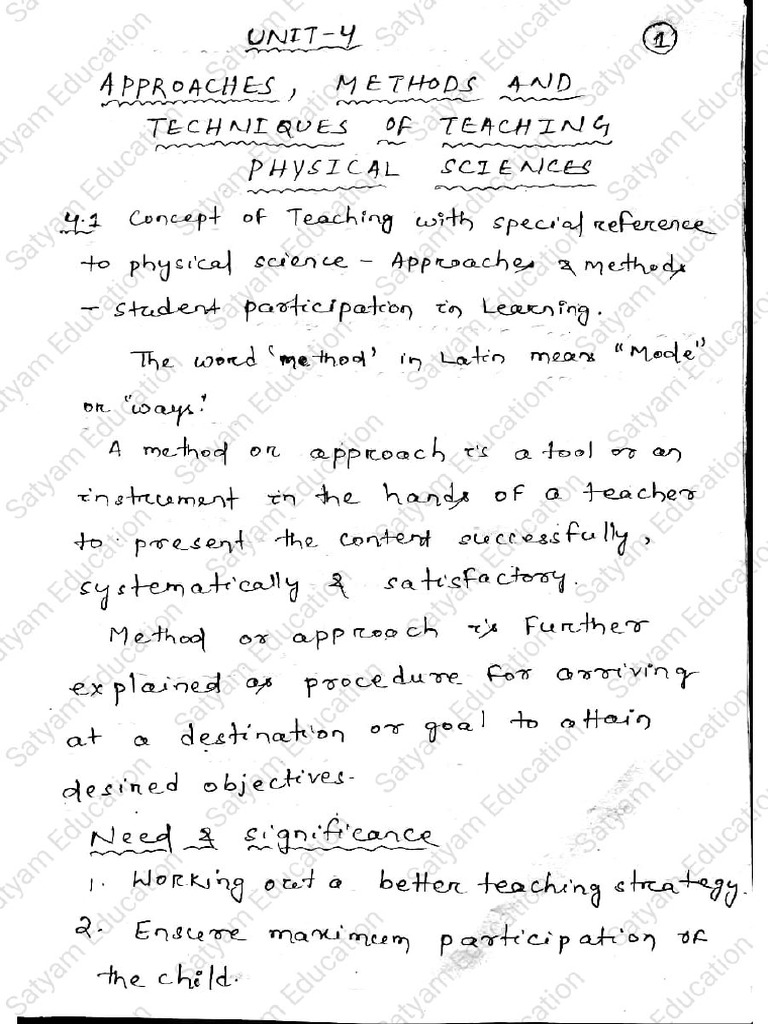 UNIT-4
1
APPROACHES, METHODS AND
TECHNIQUES OF TEACHING
PHYSICAL SCIENCES
4.1 Concept of Teaching with special reference
to physical science - Approaches & methods
- student participation in Learning.
The word 'method' in Latin means "Mode"
or "ways".
A method or approach is a tool or an
instrument in the hands of a teacher
to present the content successfully,
systematically & satisfactory.
Method or approach is further
explained as procedure for arriving
at a destination or goal to attain
desired objectives.
Need & significance
1. Working out a better teaching strategy.
2. Ensure maximum participation of
the child.
Satyam Education